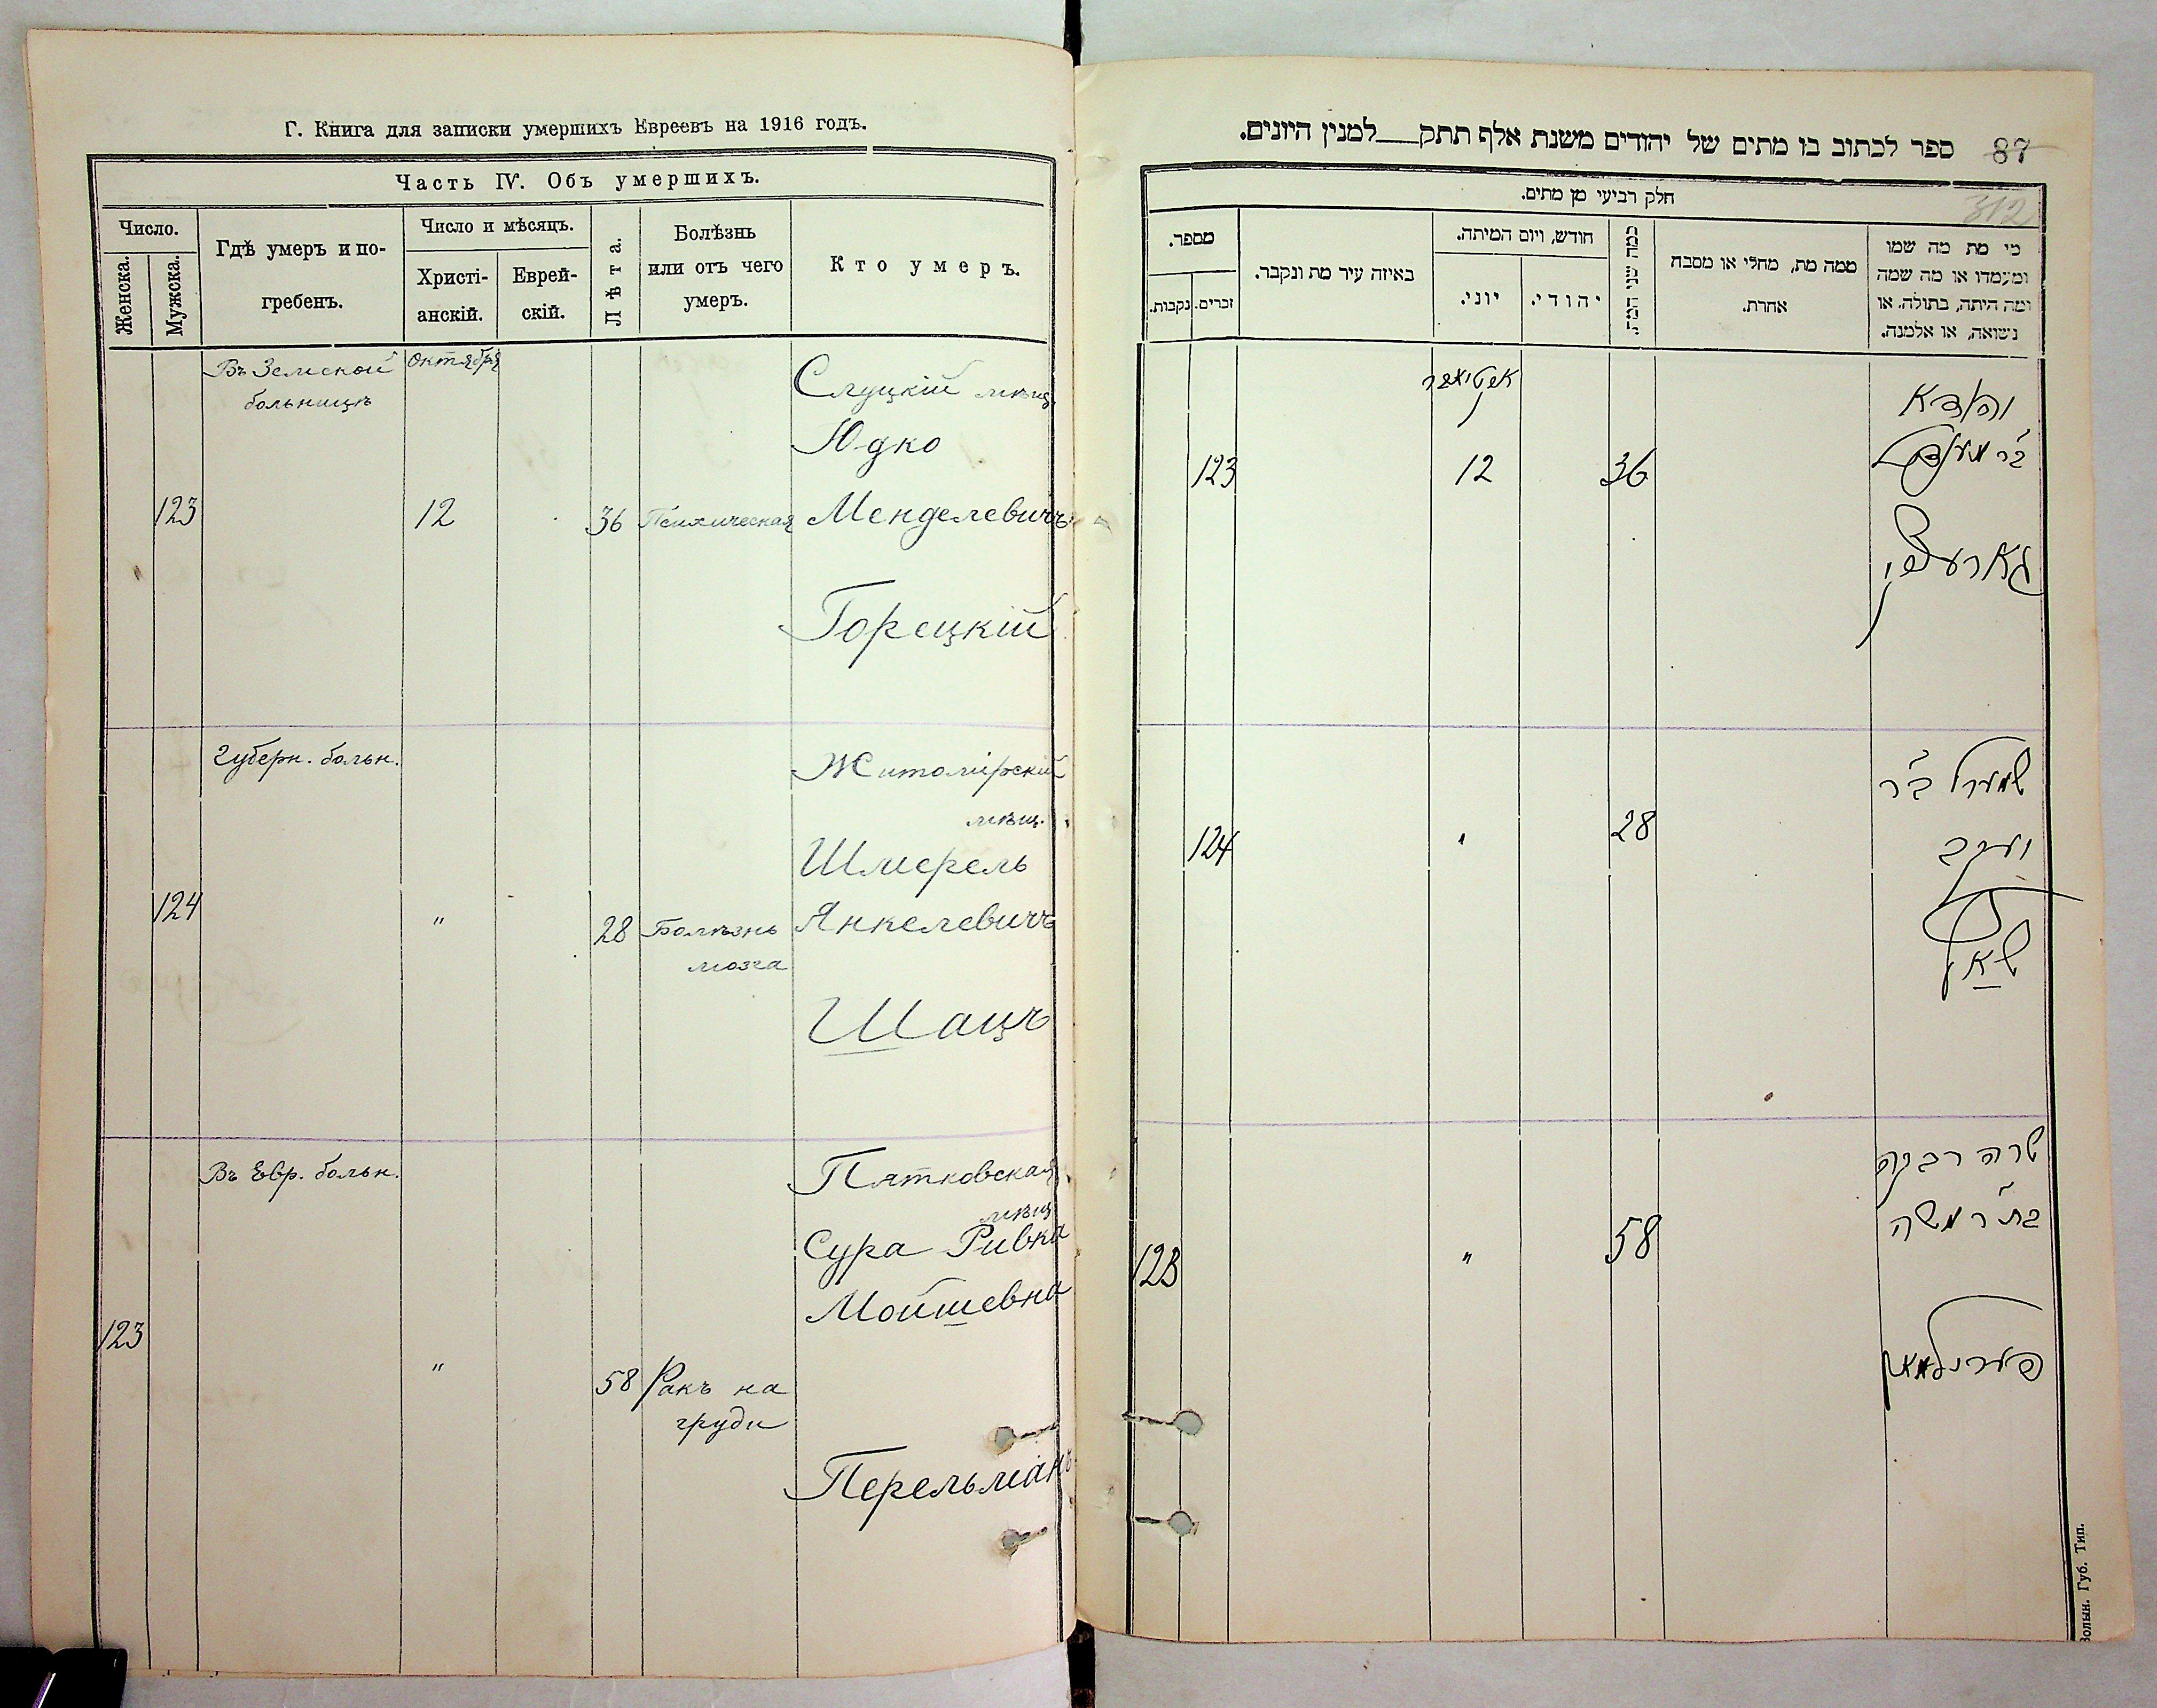 Г. Книга для записки умершихъ Евреевъ на 1916 годъ.
Часть IV. Объ умершихъ.
Число.
Женска.
Мужска.
Гдѣ умеръ и по-
гребенъ.
Число и мѣсяцъ.
Христі-
анскій.
Еврей-
скій.
Лѣта.
Болѣзнь
или отъ чего
умеръ.
Кто умеръ.
Въ Земской
больницѣ
Октября
Слуцкій мѣщ.
Юдко
123
12
36
Психическая
Менделевичъ
Горецкій
Губерн. больн.
Житомірскій
мѣщ.
Шмерель
124
"
28
Болѣзнь
мозга
Янкелевичъ
Шацъ
Въ Евр. больн.
Пятковская
мѣщ.
Сура Ривка
Мойшевна
123
"
58
Ракъ на
груди
Перельманъ
ספר לכתוב בו מתים של יהודים משנת אלף תתק___למנין היונים.
87
312
חלק רביעי מן מתים.
מספר.
זכרים.
נקבות.
באיזה עיר מת ונקבר.
חודש, ויום המיתה.
יוני.
יהודי.
כמה שני המת.
ממה מת, מחלי או מסבה
אחרת.
מי מת מה שמו
ומעמדו או מה שמה
ומה היתה, בתולה, או
נשואה, או אלמנה.
123
12
36
124
28
שמערל ב"ר
יענקב
שאץ
שרה רבקה
בת ר' משה
123
"
58
פערלמאן
Волын. Губ. Тип.